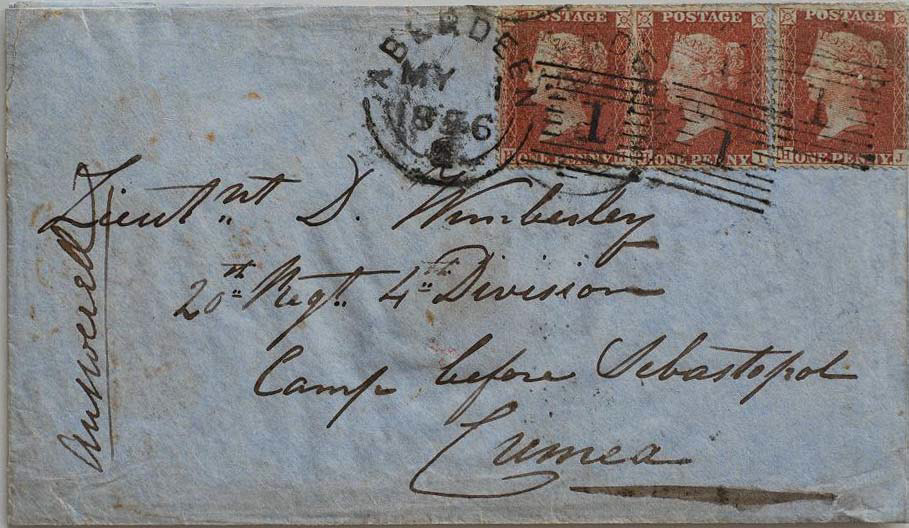 ABERDEEN
MY
1856
POSTAGE POSTAGE POSTAGE
1 1 1
H ONE PENNY H H ONE PENNY I H ONE PENNY J
Lieut"nt D. Wimberley
20th Regt. 4th Division
Camp before Sebastopol
Crimea
Answered